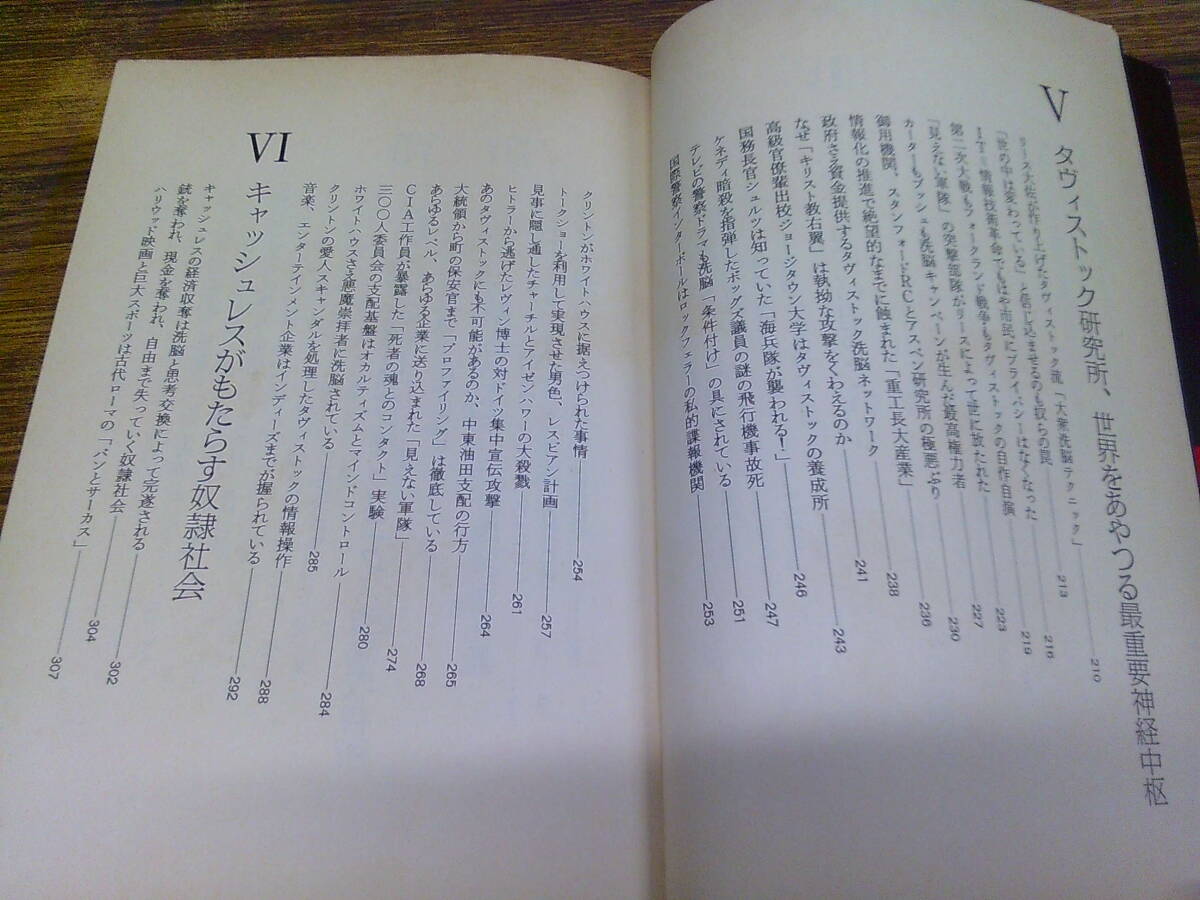 V タヴィストック研究所、世界をあやつる最重要神経中枢 210
リース大佐が作り上げたタヴィストック流「大衆洗脳テクニック」 213
「世の中は変わっている」と信じ込ませるのも奴らの罠 216
IT=情報技術革命でもはや市民にプライバシーはなくなった 219
第二次大戦もフォークランド戦争もタヴィストックの自作自演 223
「見えない軍隊」の突撃部隊がリースによって世に放たれた 227
カーターもブッシュも洗脳キャンペーンが生んだ最高権力者 230
御用機関、スタンフォードRCとアスペン研究所の極悪ぶり 236
情報化の推進で絶望的なまでに蝕まれた「重工長大産業」 238
政府さえ資金提供するタヴィストック洗脳ネットワーク 241
なぜ「キリスト教右翼」は執拗な攻撃をくわえるのか 243
高級官僚輩出校ジョージタウン大学はタヴィストックの養成所 246
国務長官シュルツは知っていた「海兵隊が襲われる!」 247
ケネディ暗殺を指弾したボッグズ議員の謎の飛行機事故死 251
テレビの警察ドラマも洗脳「条件付け」の具にされている 253
国際警察インターポールはロックフェラーの私的諜報機関
クリントンがホワイトハウスに据えつけられた事情 254
トークショーを利用して実現させた男色、レスビアン計画 257
見事に隠し通したチャーチルとアイゼンハワーの大殺戮 261
ヒトラーから逃げたレヴィン博士の対ドイツ集中宣伝攻撃 264
あのタヴィストックにも不可能があるのか、中東油田支配の行方 265
大統領から町の保安官まで「プロファイリング」は徹底している 268
あらゆるレベル、あらゆる企業に送り込まれた「見えない軍隊」 274
CIA工作員が暴露した「死者の魂とのコンタクト」実験 280
三〇〇人委員会の支配基盤はオカルティズムとマインドコントロール 284
ホワイトハウスさえ悪魔崇拝者に洗脳されている 285
クリントンの愛人スキャンダルを処理したタヴィストックの情報操作 288
音楽、エンターテインメント企業はインディーズまでが握られている 292
VI キャッシュレスがもたらす奴隷社会
キャッシュレスの経済収奪は洗脳と思考交換によって完遂される 302
銃を奪われ、現金を奪われ、自由まで失っていく奴隷社会 304
ハリウッド映画と巨大スポーツは古代ローマの「パンとサーカス」 307